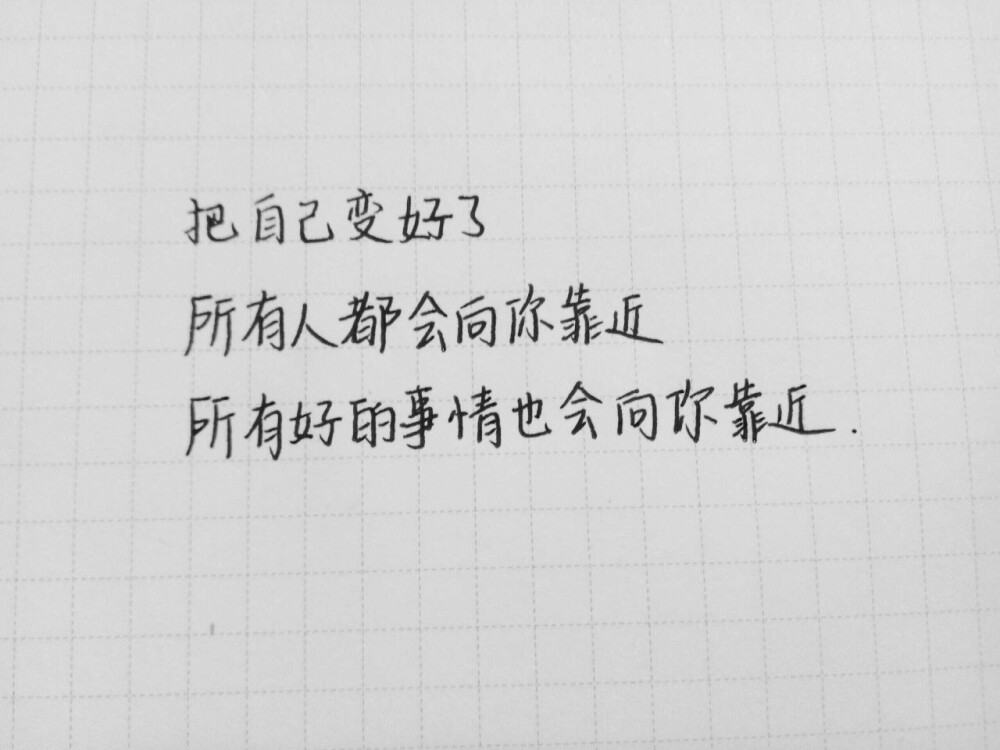 把自己变好了
所有人都会向你靠近
所有好的事情也会向你靠近.